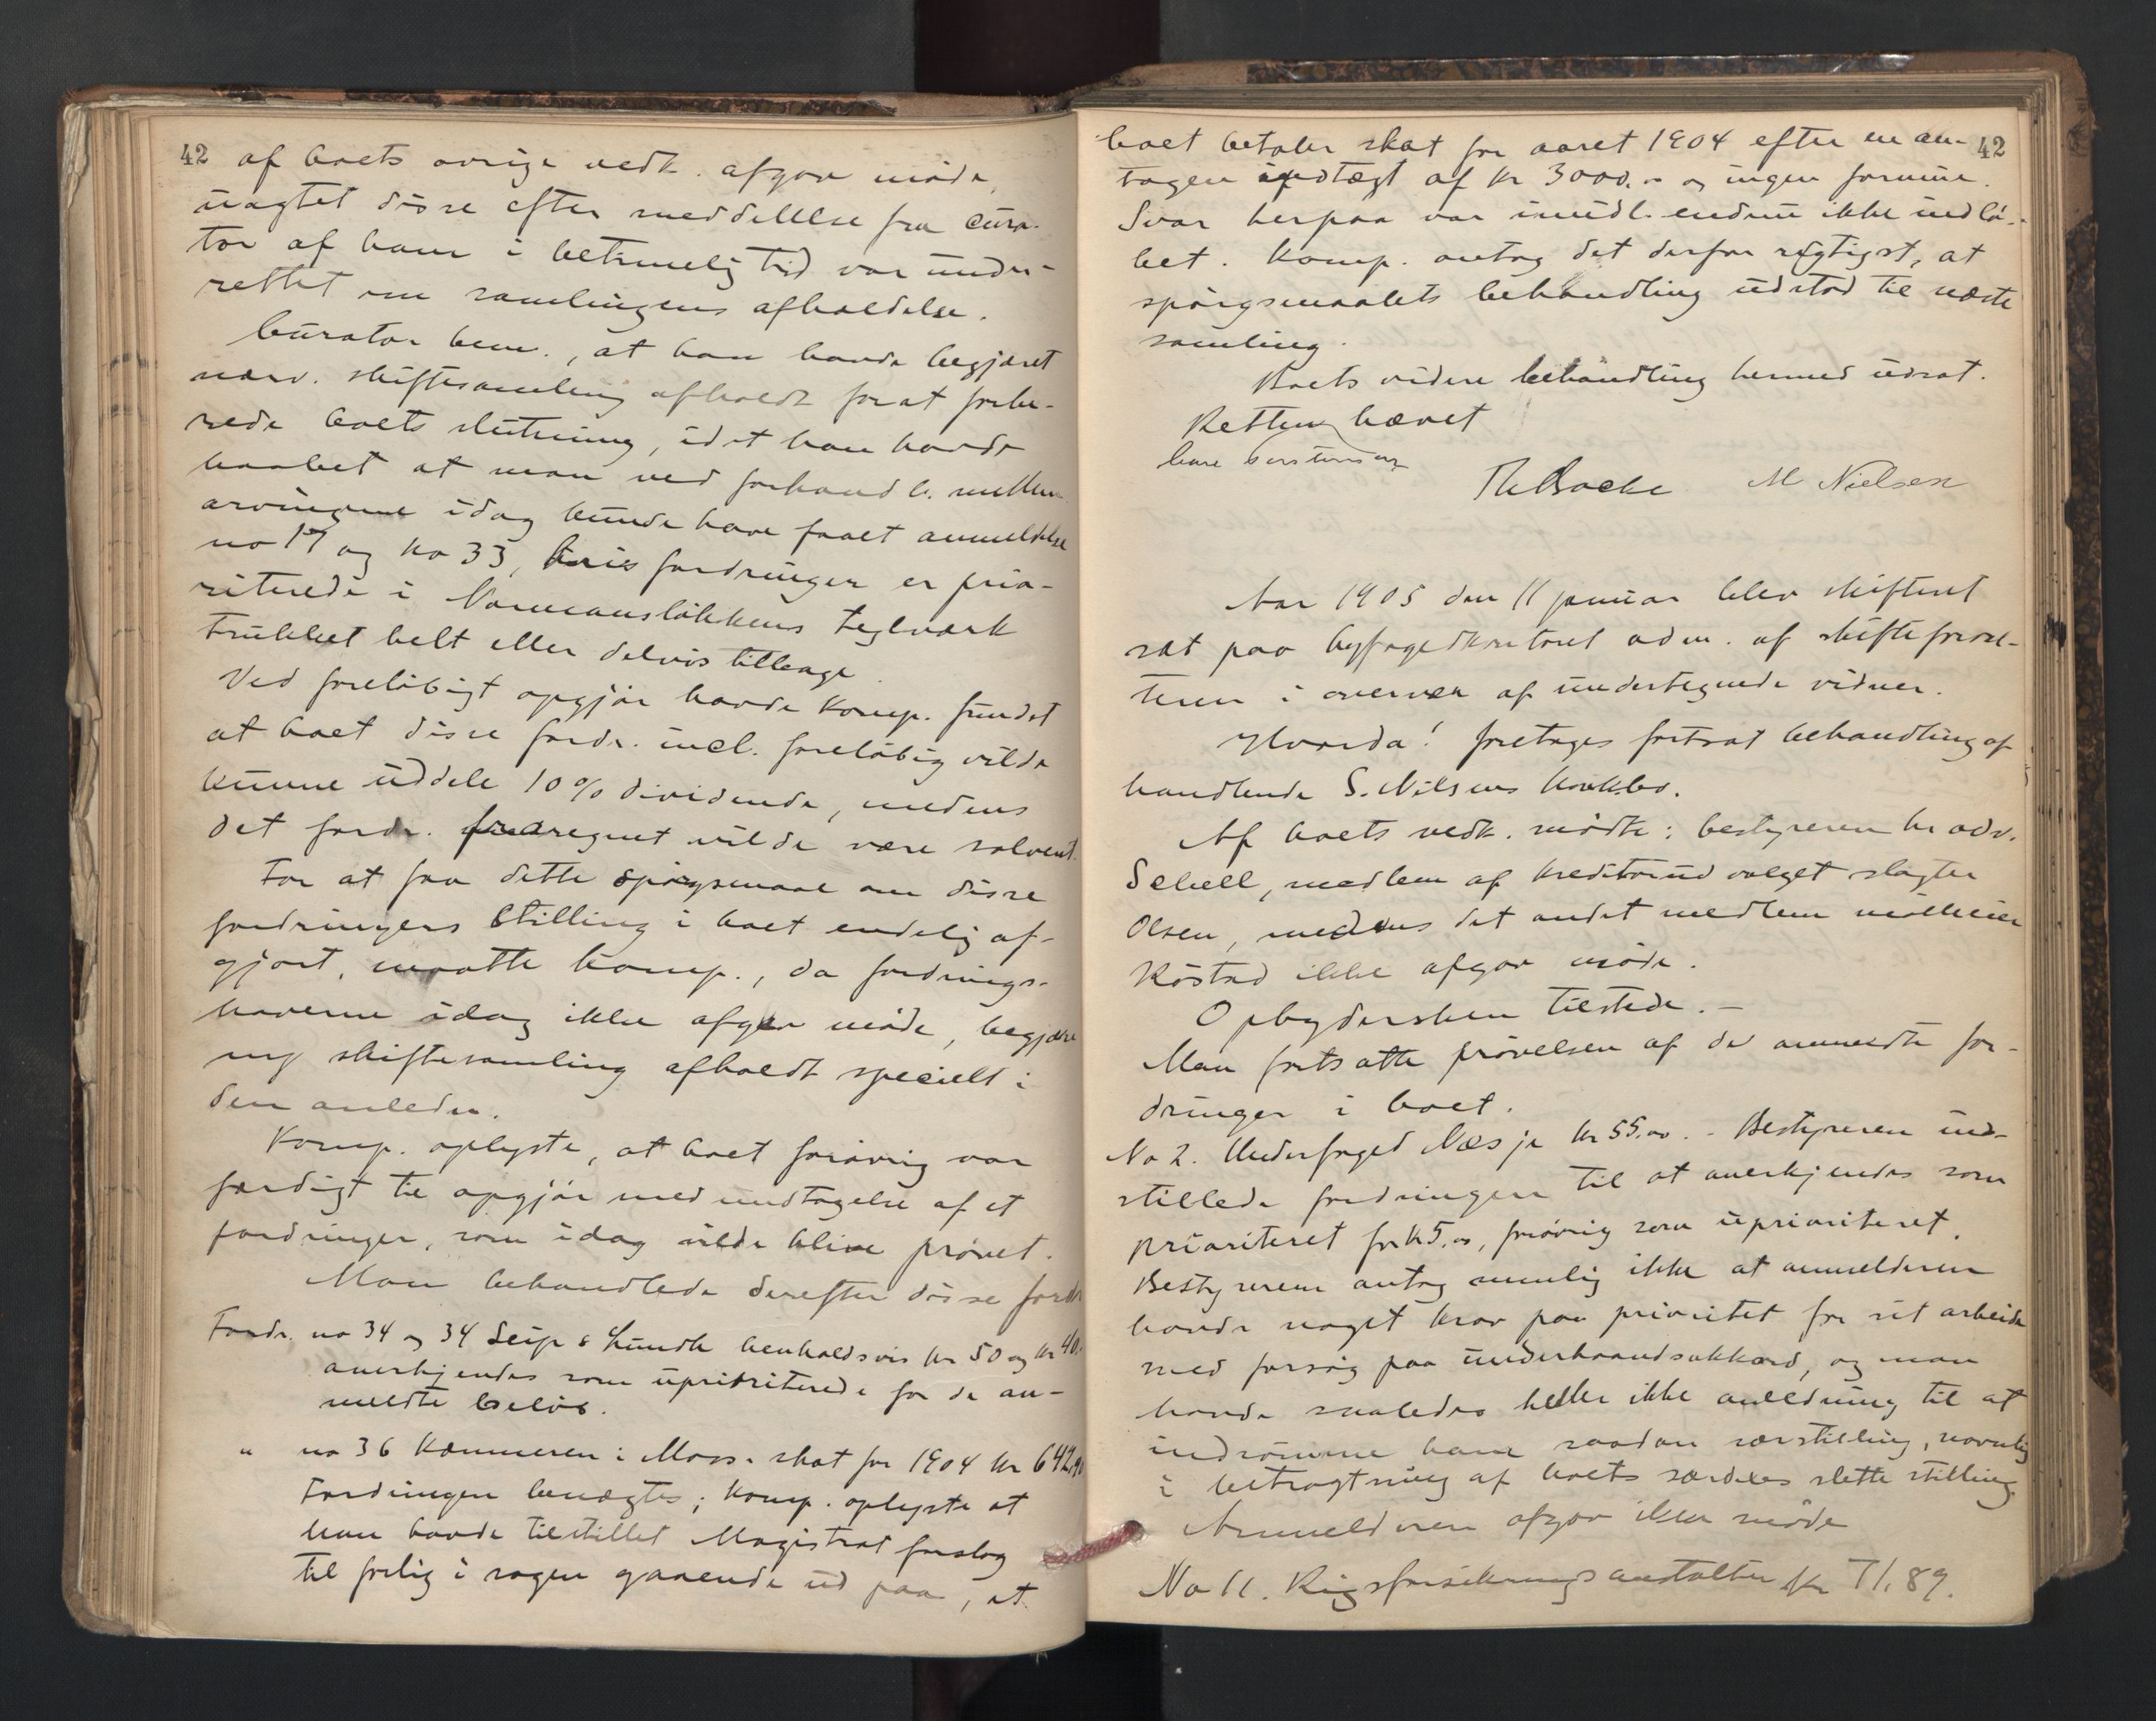 42 af boets øvrige vedk. afgav møde,
uagtet disse efter meddelelse fra cura-
tor af ham i betimelig tid var under-
rettet om samlingens afholdelse.
Curator bem., at han havde begjæret
nærv. skiftesamling afholdt for at forbe-
rede boets slutning, idet han havde
haabet at man ved forhandl. mellem
arvingerne idag kunde have faaet anmeldelse
no 17 og no 33, hvis fordringer er prio-
riterede i Normansløkkens teglværk
trukket helt eller delvis tilbage.
Ved foreløbigt opgjør havde komp. fundet
at boet disse fordr. incl. foreløbig vilde
kunne uddele 10 % dividende, medens
det fordr. fraregnet vilde være solvent.
For at faa dette spørgsmaal om disse
fordringers stilling i boet endelig af-
gjort, maatte komp., da fordrings-
haverne idag ikke afgav møde, begjære
ny skiftesamling afholdt specielt i
den anledn.
Komp. oplyste, at boet forøvrig var
færdigt til opgjør med undtagelse af et
fordringer, som idag vilde blive prøvet.
Man behandlede derefter disse fordr.
Fordr. no 34 og 34 Seip & Lunde henholdsvis kr 50 og kr 40.
anerkjendes som uprioriterede for de an-
meldte beløb.
" no 36 Kæmneren i Moss. skat for 1904 kr 642,90
Fordringen benægtes; komp. oplyste at
han havde tilstillet Magistrat forslag
til forlig i sagen gaaende ud paa, at
boet betaler skat for aaret 1904 efter en an- 42
tagen indtægt af kr 3000.- og ingen formue.
Svar herpaa var imidl. endnu ikke indlø-
bet. Komp. antog det derfor rigtigst, at
spørgsmaalets behandling udstod til næste
samling.
Boets videre behandling hermed udsat.
Retten hævet
Th Backe M Nielsen
Aar 1905 den 11 januar blev skifteret
sat paa byfogedkontoret adm. af skifteforval-
teren i overvær af undertegnede vidner.
Hvorda: foretoges fortsat behandling af
handlende S. Nilsens konk.bo.
Af boets vedk. mødte: bestyreren hr adv.
Schell, medlem af kreditorudvalget slagter
Olsen, medens det andet medlem mølleeier
Røstad ikke afgav møde.
Opbydersken tilstede. -
Man fortsatte prøvelsen af de anmeldte for-
dringer i boet.
No 2. Underfoged Næsje kr 55.00. - Bestyreren ind-
stillede fordringen til at anerkjendes som
prioriteret for k 5.00, forøvrig som uprioriteret.
Bestyreren antog nemlig ikke at anmelderen
havde noget krav paa prioritet for sit arbeide
med forsøg paa underhaandsakkord, og man
havde saaledes heller ikke anledning til at
indrømme ham saadan særstilling, navnlig
i betragtning af boets særdeles slette stilling.
Anmelderen afgav ikke møde
No 11. Rigsforsikringsanstalten kr 71,89.